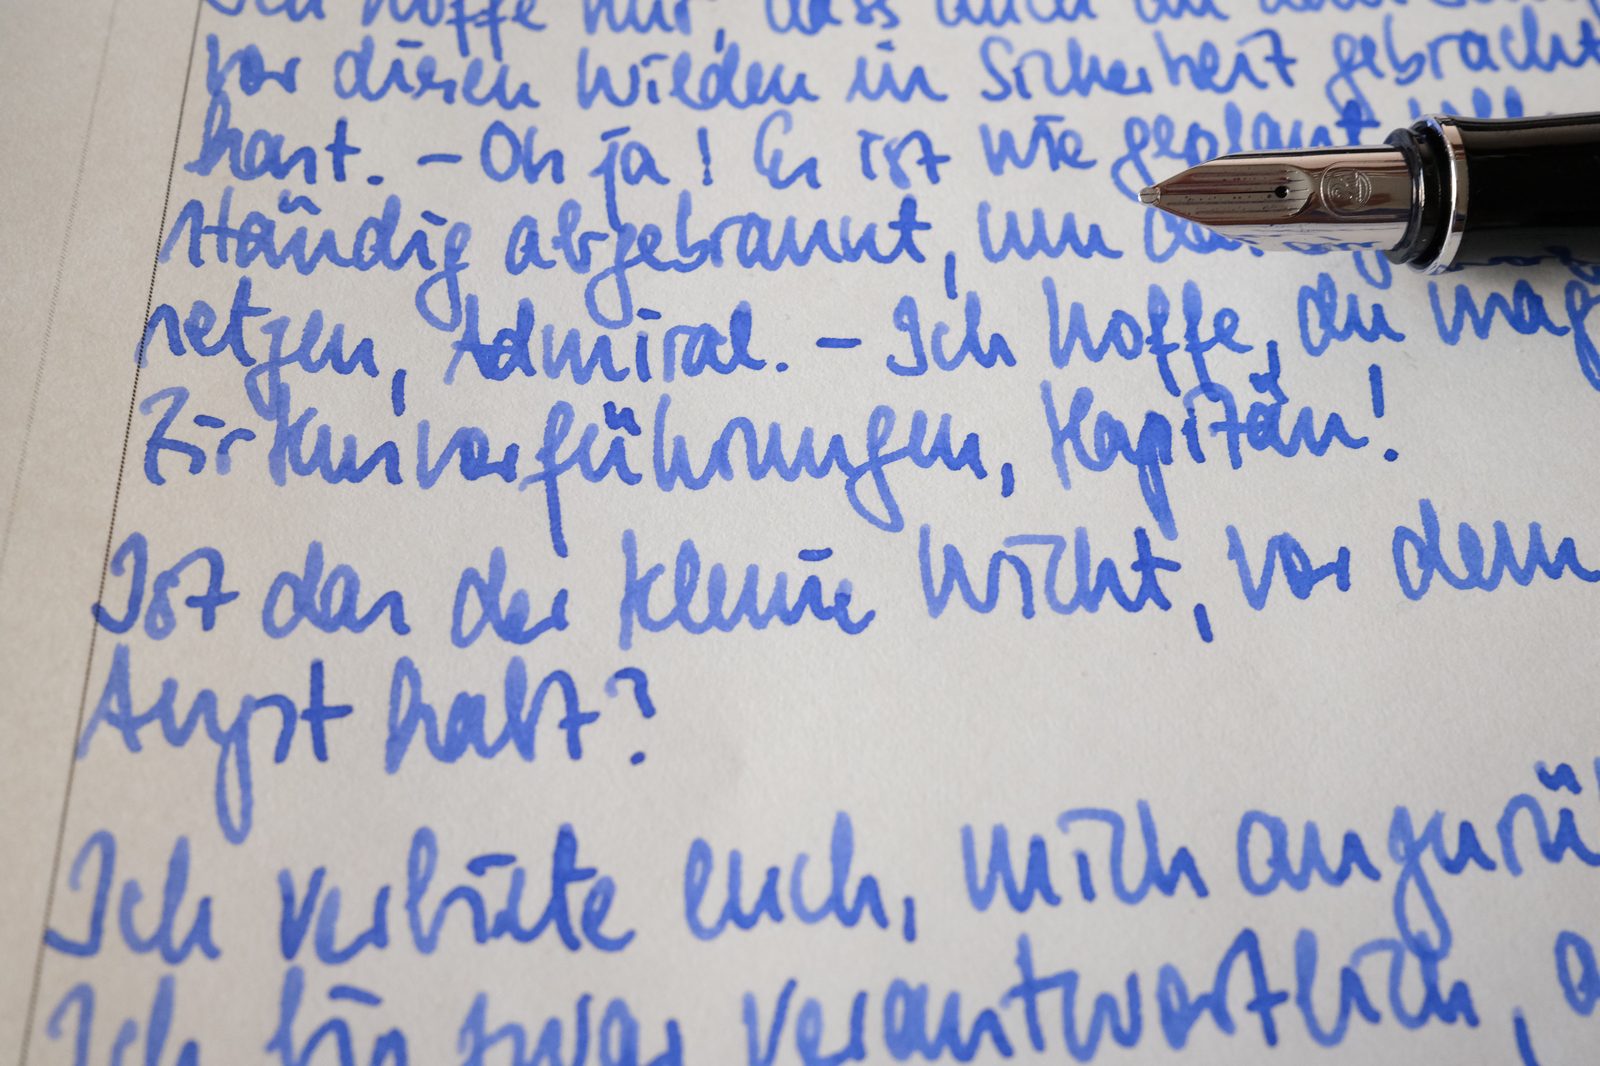 Ich hoffe nur, dass auch du dein
vor diesen Wilden in Sicherheit gebracht
hast. – Oh ja! Er ist wie geplant
ständig abgebrannt, um
setzen, Admiral. – Ich hoffe, du mag
Zirkusvorführungen, Kapitän!
Ist das der kleine Wicht, vor dem
Angst habt?
Ich verbiete euch, mich anzurü
Ich bin zwar verantwortlich,